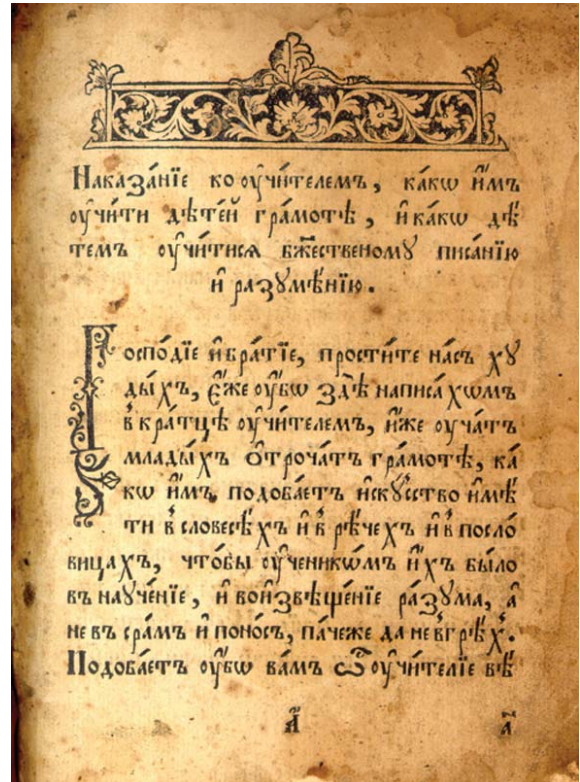 Наказа́нїе ко ᲂу҆чи́телемъ, ка́кѡ и҆̀мъ
ᲂу҆чи́ти дѣте́й гра́мотѣ, и҆ ка́кѡ дѣ́
темъ ᲂу҆чи́тисѧ бж҃е́ственомꙋ писа́нїю
и҆ разꙋмѣ́нїю.
Госпо́дїе и҆ бра́тїе, прости́те на́съ хꙋ
ды́хъ, є҆́же ᲂу҆́бѡ здѣ̀ написа́хѡмъ
в кра́тцѣ ᲂу҆чи́телемъ, и҆̀же ᲂу҆ча́тъ
млады́хъ ѻ҆троча́тъ гра́мотѣ, ка́
кѡ и҆̀мъ подоба́етъ и҆скꙋ́сство и҆мѣ́
ти в словесѣ́хъ и҆ в рѣ́чехъ и҆ в посло́
вицахъ, что́бы ᲂу҆ченикѡ́мъ и҆́хъ бы́ло
въ наꙋче́нїе, и҆ во и҆звѣще́нїе ра́зꙋма, а҆
не въ сра́мъ и҆ поно́съ, па́чеже да не в грѣ́хъ.
Подоба́етъ ᲂу҆́бѡ ва́мъ ѽ ᲂу҆чи́телїе вѣ́
а҃